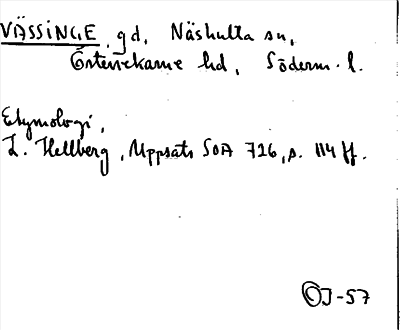 VÄSSINGE, gd, Näshulta sn,
Österrekarne hd, Söderm. l.
Etymologi,
L. Hellberg, Uppsats SOA 726, s. 114 ff.
OJ-57